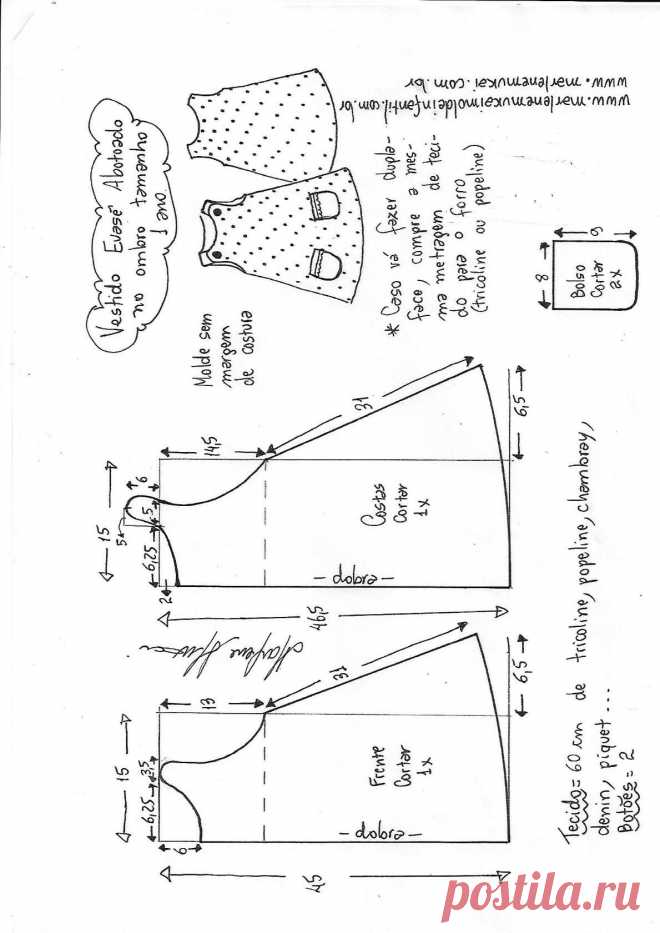 Vestido Evasê Abotoado
no ombro tamanho
1 ano
www.marlenemukai.com.br
www.marlenemukaimoldeinfantil.com.br
* Caso vá fazer dupla-
face, compre a mes-
ma metragem de teci-
do para o forro
(tricoline ou popeline)
Molde sem
margem
de costura
8
9
Bolso
Cortar
2x
15
6
5
5
6,25
2
14,5
31
6,5
46,5
Costas
Cortar
1x
- dobra -
15
3,5
6,25
6
13
31
6,5
45
Frente
Cortar
1x
- dobra -
Tecido = 60 cm de tricoline, popeline, chambray,
denin, piquet ...
Botões = 2
postila.ru